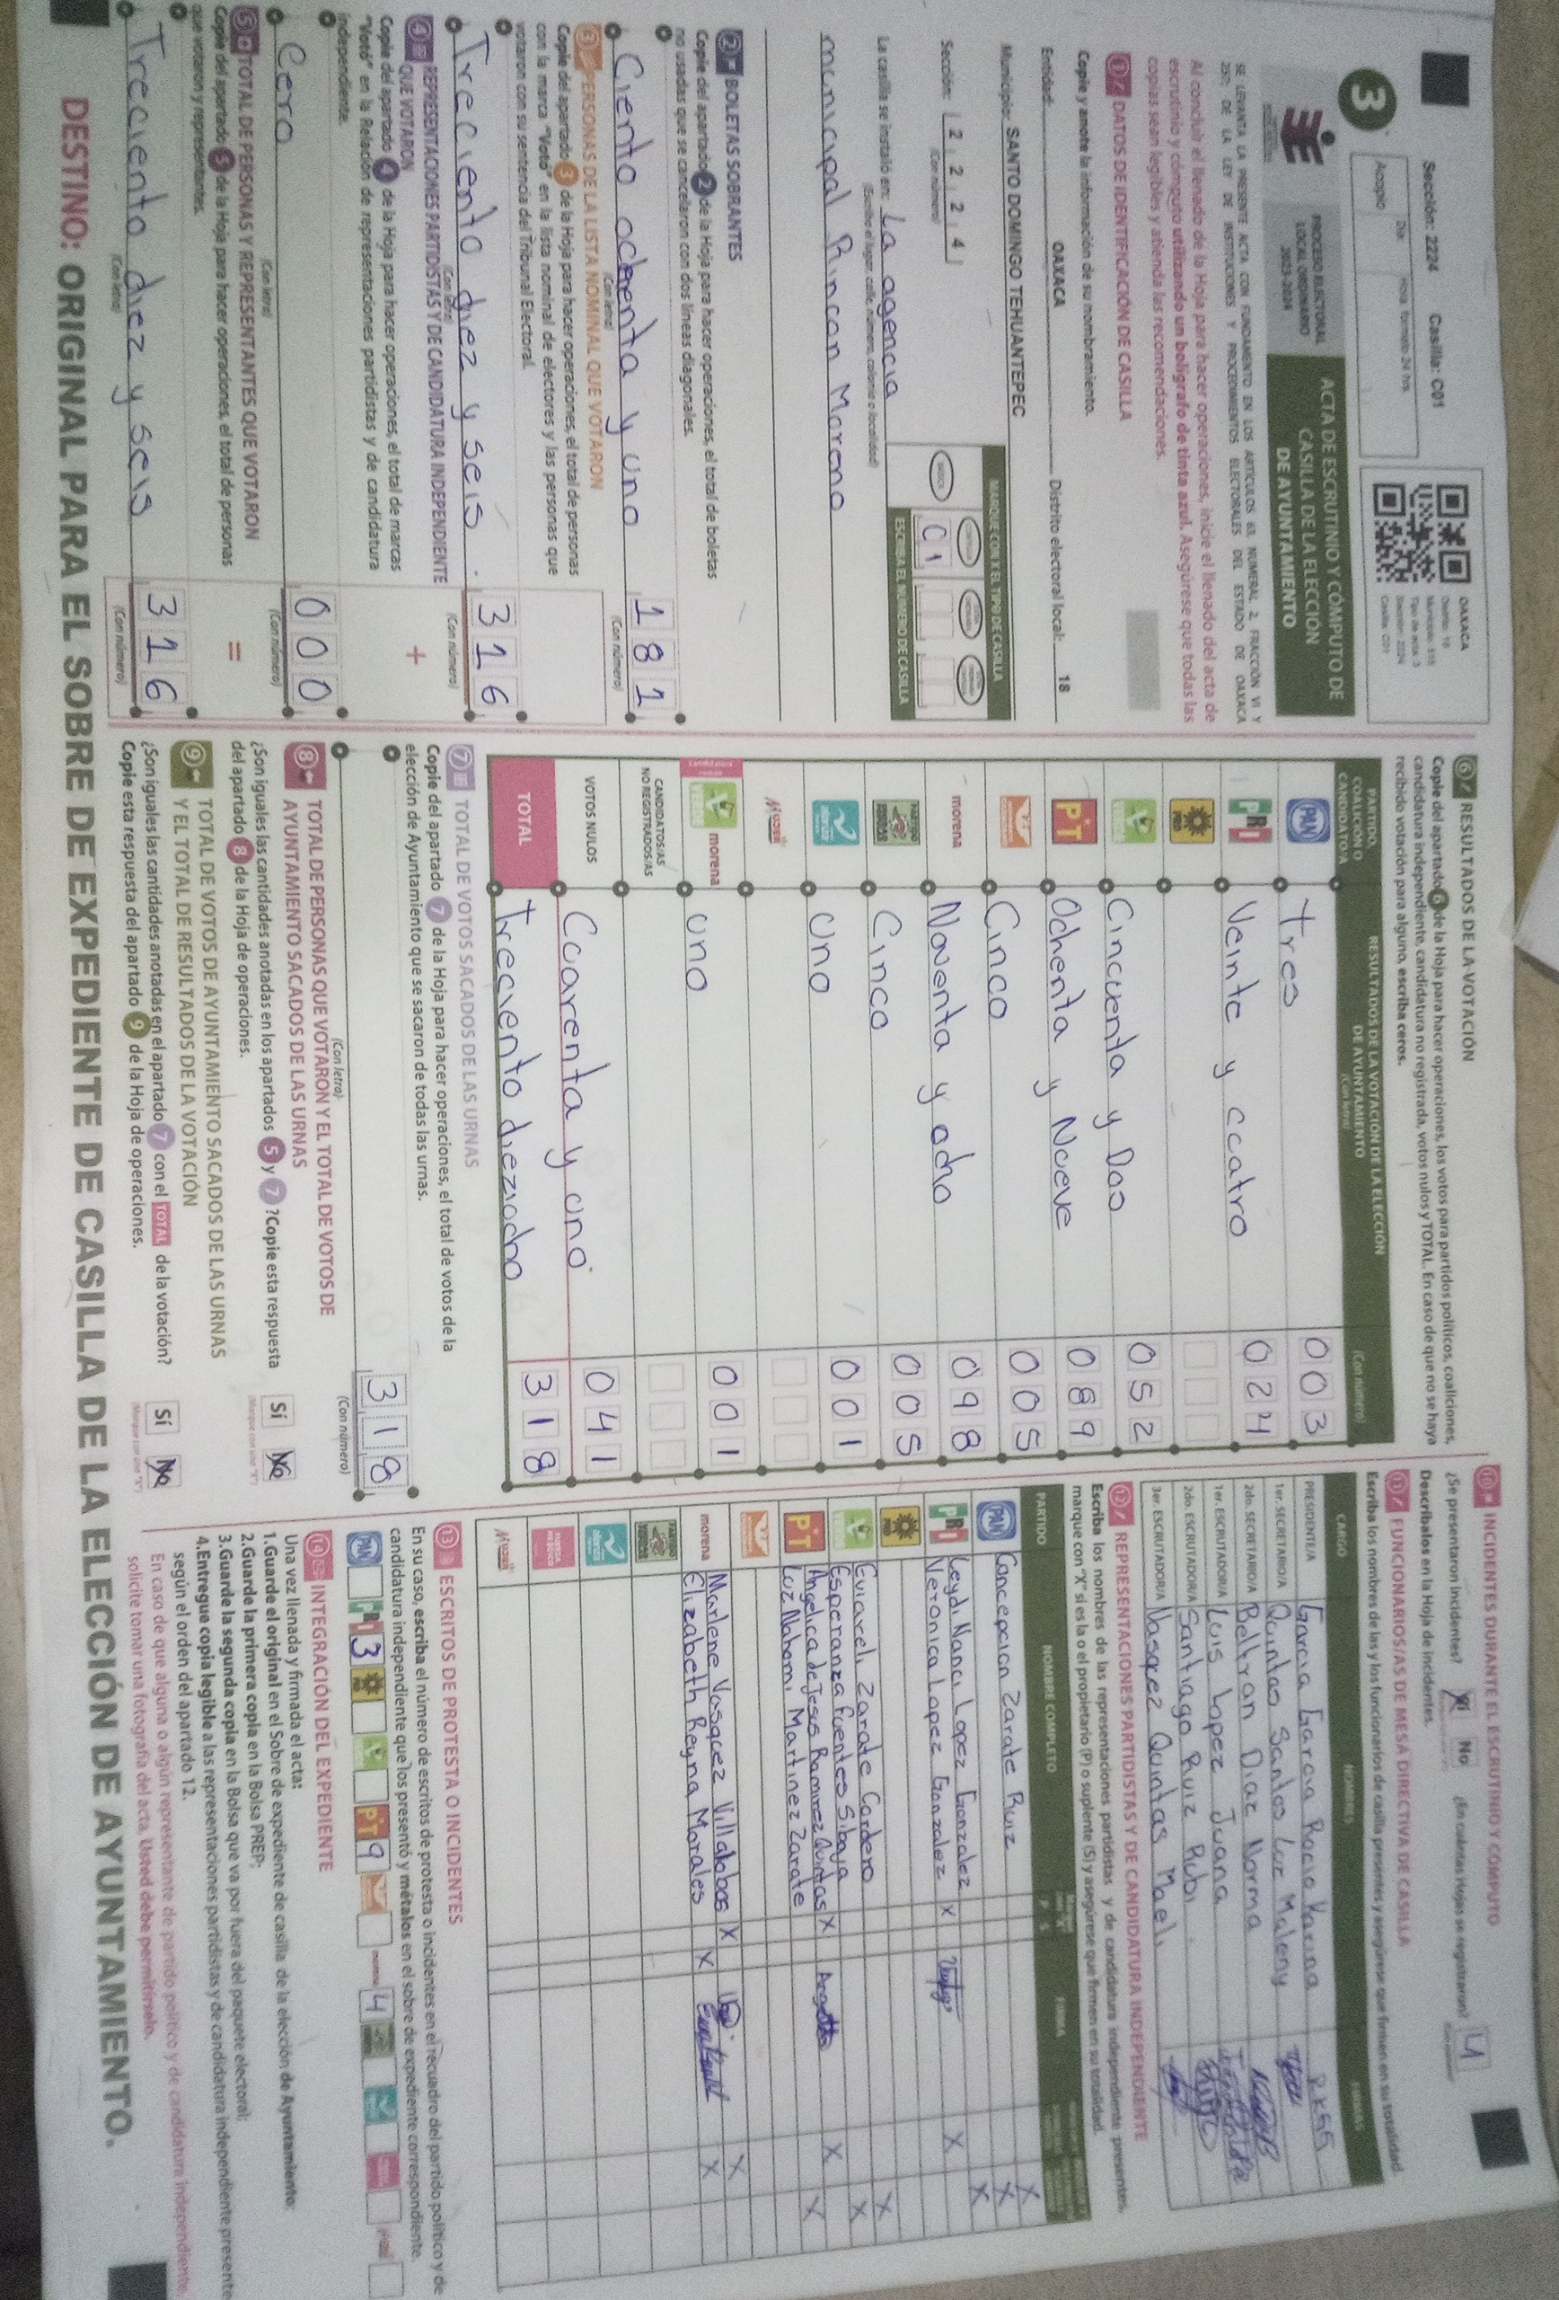 3
Sección: 2224 Casilla: C01
Día Hora formato 24 hrs.
Acopio
OAXACA
Distrito: 18
Sección: 2224
Casilla: C01
PROCESO ELECTORAL
LOCAL ORDINARIO
2023-2024
ACTA DE ESCRUTINIO Y CÓMPUTO DE
CASILLA DE LA ELECCIÓN
DE AYUNTAMIENTO
SE LEVANTA LA PRESENTE ACTA CON FUNDAMENTO EN LOS ARTÍCULOS 63, NUMERAL 2, FRACCIÓN VI Y
257; DE LA LEY DE INSTITUCIONES Y PROCEDIMIENTOS ELECTORALES DEL ESTADO DE OAXACA
Al concluir el llenado de la Hoja para hacer operaciones, inicie el llenado del acta de
escrutinio y cómputo utilizando un bolígrafo de tinta azul. Asegúrese que todas las
copias sean legibles y atienda las recomendaciones.
1 DATOS DE IDENTIFICACIÓN DE CASILLA
Copie y anote la información de su nombramiento.
Entidad: OAXACA Distrito electoral local: 18
Municipio: SANTO DOMINGO TEHUANTEPEC
Sección: 2 2 2 4
(Con número)
MARQUE CON X EL TIPO DE CASILLA
C1
ESCRIBA EL NÚMERO DE CASILLA
La casilla se instaló en: La agencia
(Escriba el lugar: calle, número, colonia o localidad)
municipal Rincon Moreno
2 BOLETAS SOBRANTES
Copie del apartado 2 de la Hoja para hacer operaciones, el total de boletas
no usadas que se cancelaron con dos líneas diagonales.
Ciento ochenta y uno 181
(Con letra) (Con número)
3 PERSONAS DE LA LISTA NOMINAL QUE VOTARON
Copie del apartado 3 de la Hoja para hacer operaciones, el total de personas
con la marca "Votó" en la lista nominal de electores y las personas que
votaron con su sentencia del Tribunal Electoral.
Treciento diez y seis. 316
(Con letra) (Con número)
4 REPRESENTACIONES PARTIDISTAS Y DE CANDIDATURA INDEPENDIENTE
QUE VOTARON +
Copie del apartado 4 de la Hoja para hacer operaciones, el total de marcas
"Votó" en la Relación de representaciones partidistas y de candidatura
independiente.
Cero 000
(Con letra) (Con número)
5 TOTAL DE PERSONAS Y REPRESENTANTES QUE VOTARON =
Copie del apartado 5 de la Hoja para hacer operaciones, el total de personas
que votaron y representantes.
Treciento diez y seis 316
(Con letra) (Con número)
6 RESULTADOS DE LA VOTACIÓN
Copie del apartado 6 de la Hoja para hacer operaciones, los votos para partidos políticos, coaliciones,
candidatura independiente, candidatura no registrada, votos nulos y TOTAL. En caso de que no se haya
recibido votación para alguno, escriba ceros.
PARTIDO, COALICIÓN O CANDIDATO/A
RESULTADOS DE LA VOTACIÓN DE LA ELECCIÓN DE AYUNTAMIENTO
(Con letra) (Con número)
PAN tres 003
PRI Veinte y cuatro 024
PRD
VERDE Cincuenta y Dos 052
PT Ochenta y Nueve 089
Cinco 005
morena Noventa y ocho 098
Cinco 005
nueva alianza Uno 001
Mujer
VERDE morena uno 001
CANDIDATOS/AS NO REGISTRADOS/AS
VOTOS NULOS Cuarenta y uno 041
TOTAL Treciento dieziocho 318
7 TOTAL DE VOTOS SACADOS DE LAS URNAS
Copie del apartado 7 de la Hoja para hacer operaciones, el total de votos de la
elección de Ayuntamiento que se sacaron de todas las urnas.
318
(Con letra) (Con número)
8 TOTAL DE PERSONAS QUE VOTARON Y EL TOTAL DE VOTOS DE
AYUNTAMIENTO SACADOS DE LAS URNAS
¿Son iguales las cantidades anotadas en los apartados 5 y 7 ?Copie esta respuesta
del apartado 8 de la Hoja de operaciones.
Sí No
9 TOTAL DE VOTOS DE AYUNTAMIENTO SACADOS DE LAS URNAS
Y EL TOTAL DE RESULTADOS DE LA VOTACIÓN
¿Son iguales las cantidades anotadas en el apartado 7 con el TOTAL de la votación?
Copie esta respuesta del apartado 9 de la Hoja de operaciones.
Sí No
10 INCIDENTES DURANTE EL ESCRUTINIO Y CÓMPUTO
¿Se presentaron incidentes? Sí No ¿En cuántas Hojas se registraron? 4
Descríbalos en la Hoja de incidentes.
11 FUNCIONARIOS/AS DE MESA DIRECTIVA DE CASILLA
Escriba los nombres de las y los funcionarios de casilla presentes y asegúrese que firmen en su totalidad.
CARGO NOMBRES FIRMAS
PRESIDENTE/A Garcia Garcia Rocio Karina RKGG
1er. SECRETARIO/A Quintas Santos Luz Maleny
2do. SECRETARIO/A Beltran Diaz Norma
1er. ESCRUTADOR/A Luis Lopez Juana
2do. ESCRUTADOR/A Santiago Ruiz Rubi
3er. ESCRUTADOR/A Vasquez Quintas Maeli
12 REPRESENTACIONES PARTIDISTAS Y DE CANDIDATURA INDEPENDIENTE
Escriba los nombres de las representaciones partidistas y de candidatura independiente presentes,
marque con "X" si es la o el propietario (P) o suplente (S) y asegúrese que firmen en su totalidad.
PARTIDO NOMBRE COMPLETO P S FIRMA
PAN Concepcion Zarate Ruiz X X
PRI Leydi Nanci Lopez Gonzalez X
Veronica Lopez Gonzalez X X
PRD
VERDE Euiareli Zarate Cordero X
Esperanza Fuentes Sibaja X
PT Angelica de Jesus Ramirez Quintas X X
Luz Nahomi Martinez Zarate X
morena Marlene Vasquez Villalobos X X
Elizabeth Reyna Morales X X
nueva alianza
Mujer
13 ESCRITOS DE PROTESTA O INCIDENTES
En su caso, escriba el número de escritos de protesta o incidentes en el recuadro del partido político y de
candidatura independiente que los presentó y métalos en el sobre de expediente correspondiente.
PAN PRI 3 PRD PT 9 morena 4
14 INTEGRACIÓN DEL EXPEDIENTE
Una vez llenada y firmada el acta:
1.Guarde el original en el Sobre de expediente de casilla de la elección de Ayuntamiento;
2.Guarde la primera copia en la Bolsa PREP;
3.Guarde la segunda copia en la Bolsa que va por fuera del paquete electoral;
4.Entregue copia legible a las representaciones partidistas y de candidatura independiente presente
según el orden del apartado 12.
En caso de que alguna o algún representante de partido político y de candidatura independiente
solicite tomar una fotografía del acta, Usted debe permitírselo.
DESTINO: ORIGINAL PARA EL SOBRE DE EXPEDIENTE DE CASILLA DE LA ELECCIÓN DE AYUNTAMIENTO.